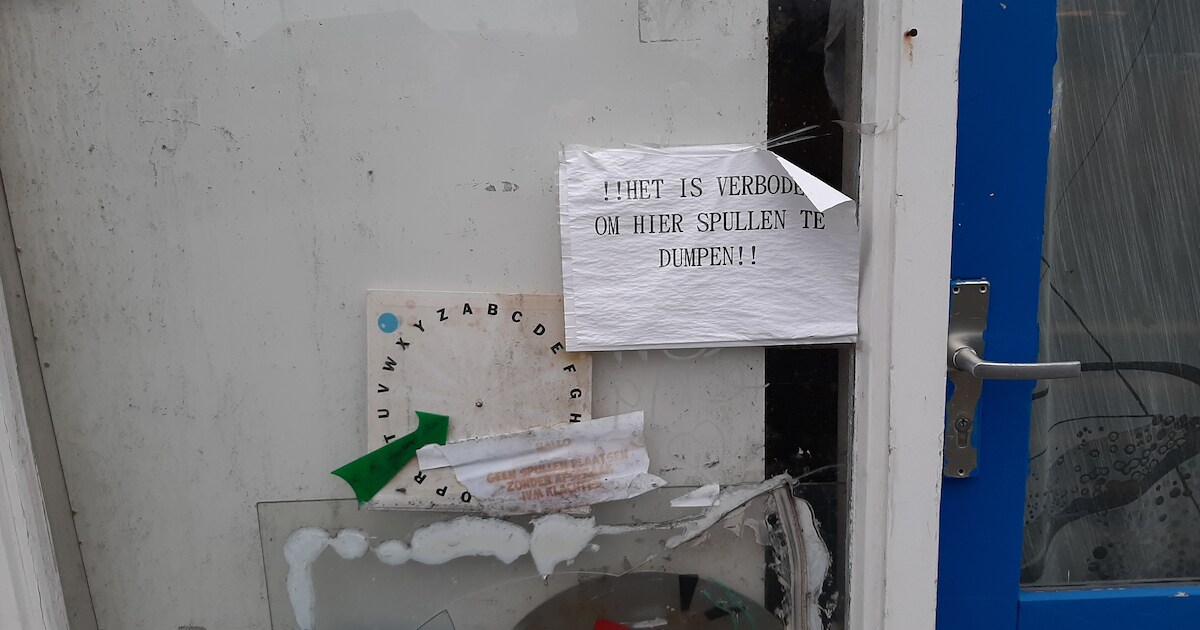 !!HET IS VERBODE
OM HIER SPULLEN TE
DUMPEN!!
A B C D E F G H
P R
T U V W X Y Z
HALLO
GEEN SPULLEN PLAATSEN
ZONDER
IVM